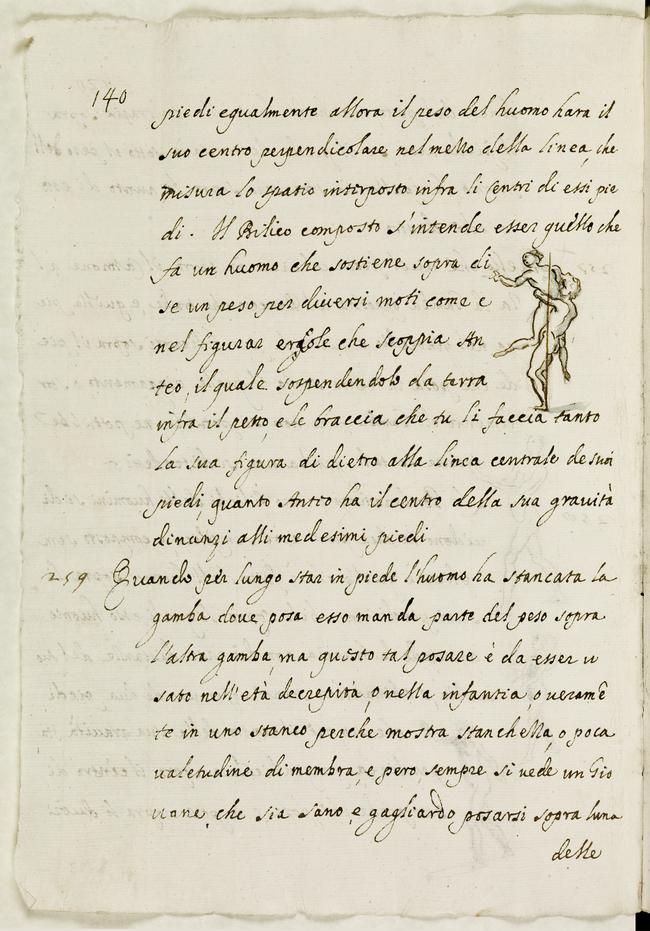 140
piedi egualmente allora il peso del huomo hara il
suo centro perpendicolare nel mezzo della linea, che
misura lo spatio interposto infra li centri di essi pie
di. Il Bilico composto s'intende esser quello che
fa un huomo che sostiene sopra di
se un peso per diversi moti come e
nel figurar ercole che scoppia An
teo, il quale sospendendolo da terra
infra il petto, e le braccia che tu li faccia tanto
la sua figura di dietro alla linea centrale de suoi
piedi, quanto Anteo ha il centro della sua gravità
dinanzi alli medesimi piedi
259 Quando per lungo star in piede l'huomo ha stancata la
gamba dove posa esso manda parte del peso sopra
l'altra gamba, ma questo tal posare è da esser u
sato nell'età decrepità, o nella infantia, o veramē
te in uno stanco perche mostra stanchezza, o poca
valetudine di membra, e pero sempre si vede un Gio
vane, che sia sano, e gagliardo posarsi sopra luna
delle